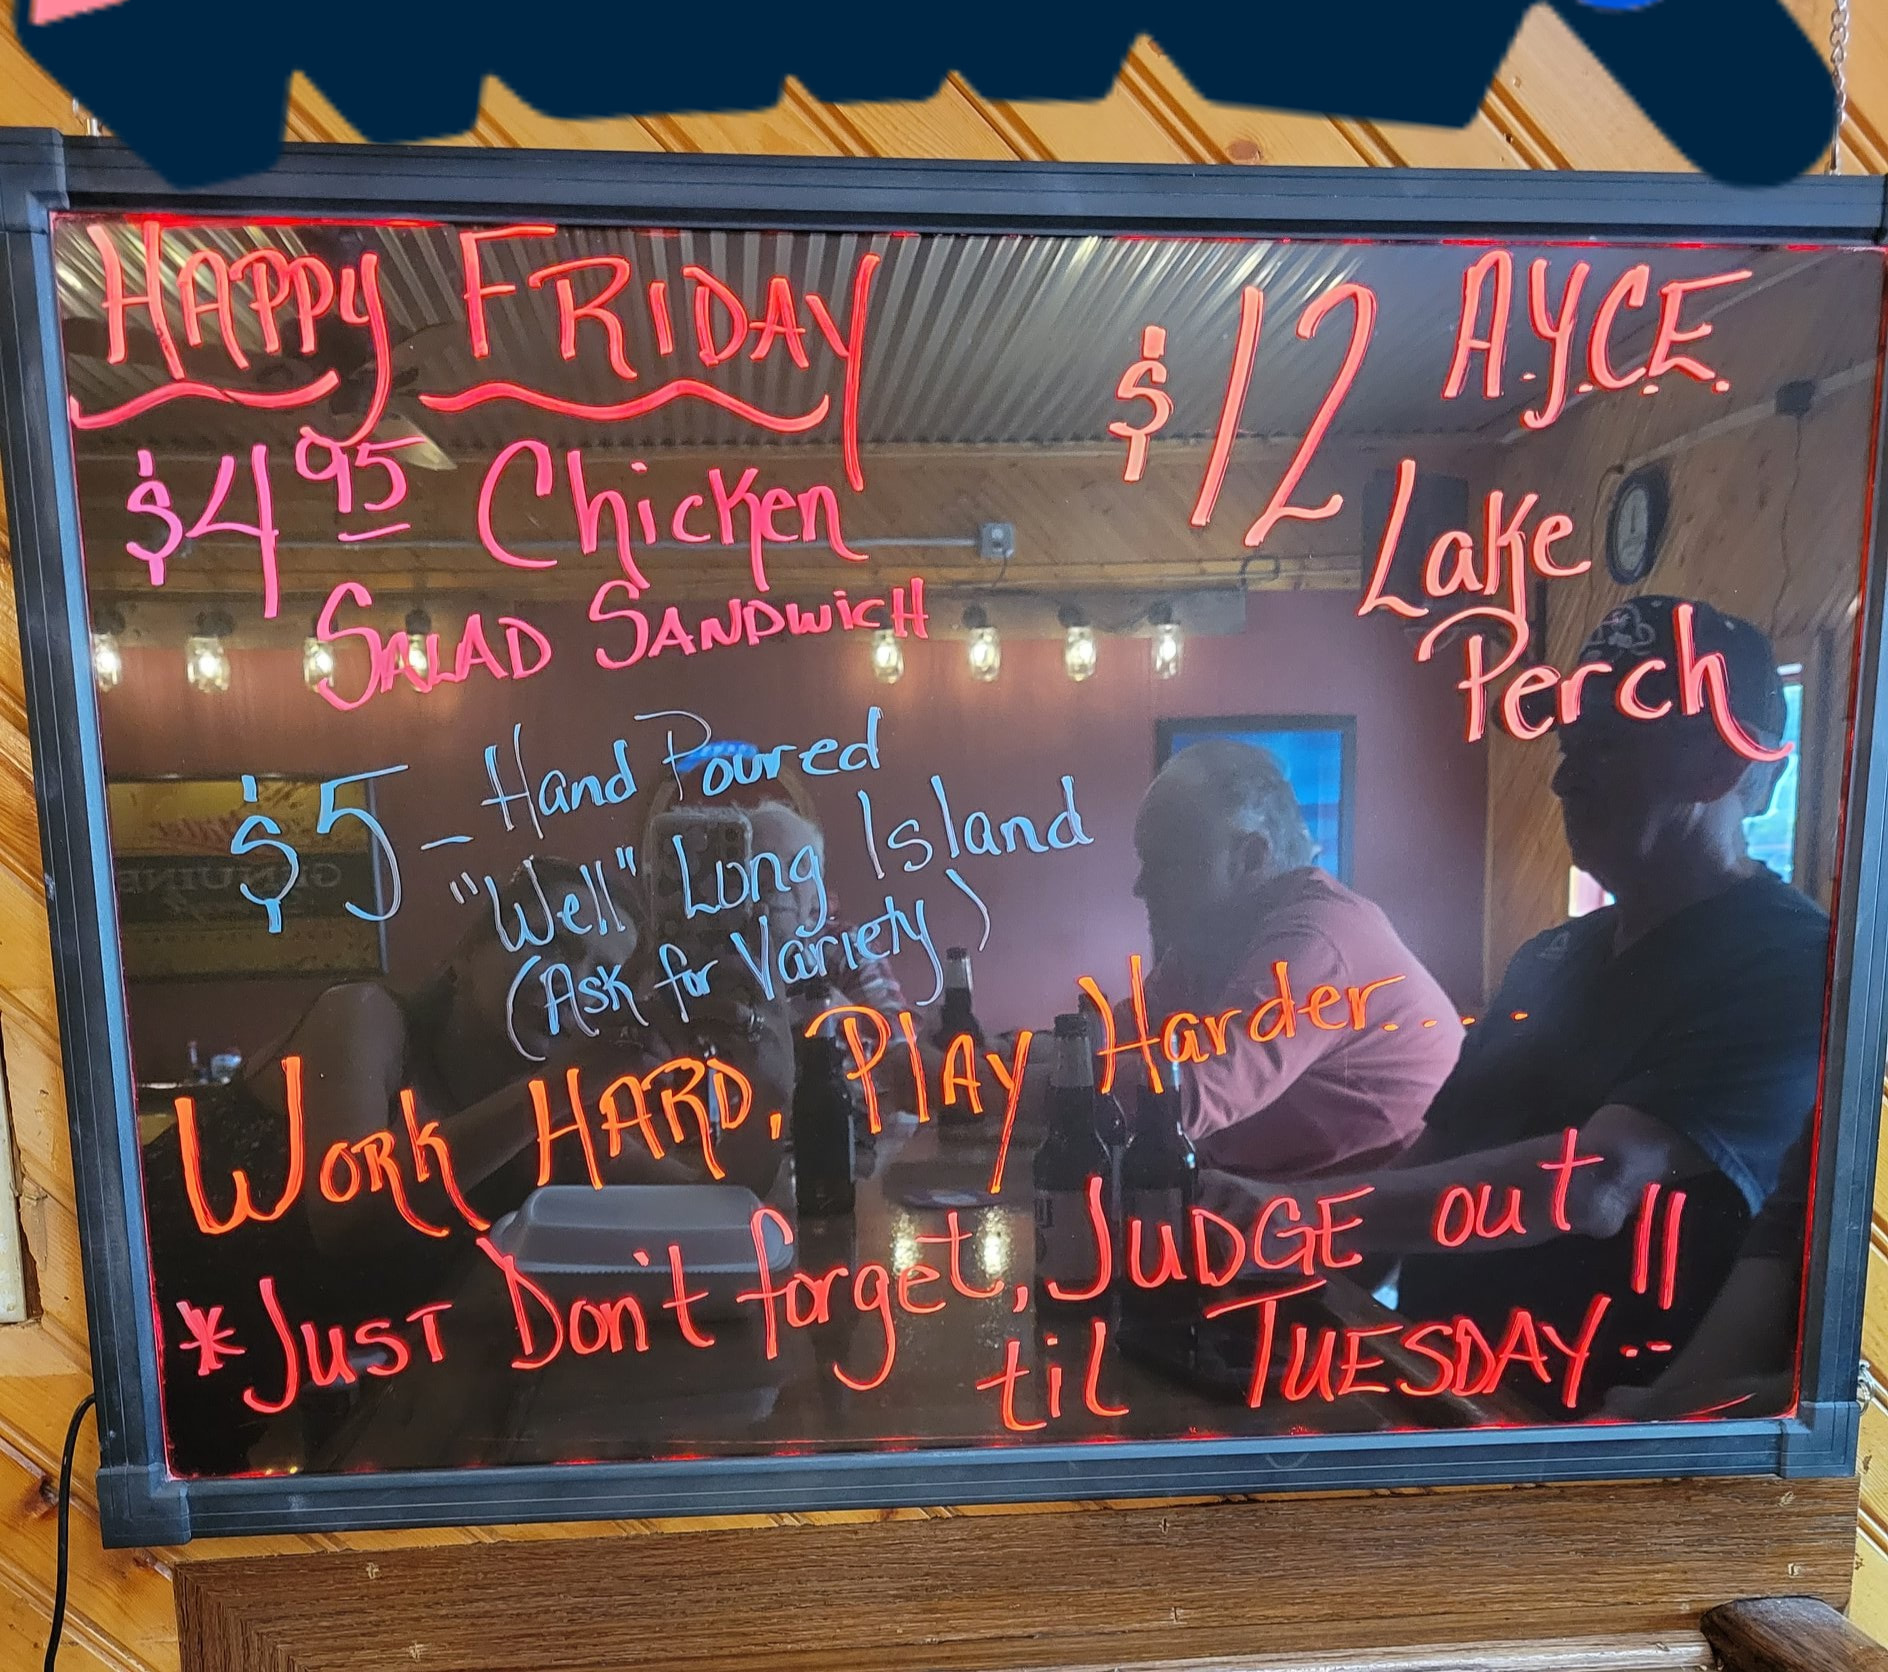 HAPPY FRIDAY
$4.95 Chicken
SALAD SANDWICH
$12 A.Y.C.E.
Lake
Perch
$5 - Hand Poured
"Well" Long Island
(Ask for Variety)
WORK HARD, PLAY Harder.....
*JUST Don't forget, JUDGE out
til TUESDAY..!!
GENUINE